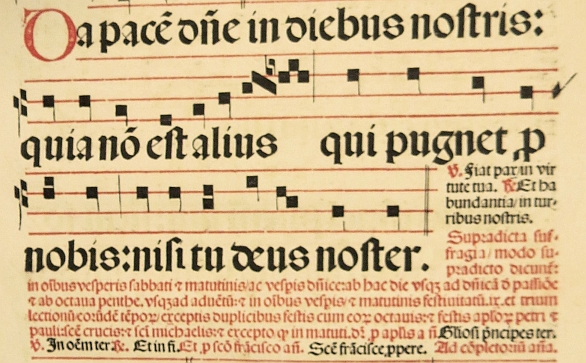 Da pacē dñe in diebus nostris:
quia nō est alius qui pugnet ꝓ
℣. Fiat pax in vir
tute tua. ℟. Et ha
bundantia/ in tur-
ribus nostris.
nobis: nisi tu deus noster.
Supradicta suf-
fragia/ modo su-
pradicto dicunẽ:
in oībus vesperis sabbati ⁊ matutinis/ac vespis dñice: ab hac die vsqꝫ ad dñicā ꝺ passiōe
⁊ ab octaua penthe. vsqꝫ ad aduētū: ⁊ in oībus vespis/ ⁊ matutinis festiuitatū .ix. et trium
lectionū eorūdē tēporꝝ: exceptis duplicibus festis cum eorꝝ octauis: ⁊ festis aploꝝ petri ⁊
pauli: scē crucis: ⁊ scī michaelis: ⁊ excepto ꝙ in matuti. dr̄. ꝓ aplīs a ñ. Gliosi pñcipes ter.
℣. In oēm ter. ℟. Et in fi. Et ꝓ scō frācisco añ. Scē frācisce, ppere. Ad cōpletoriū aña.